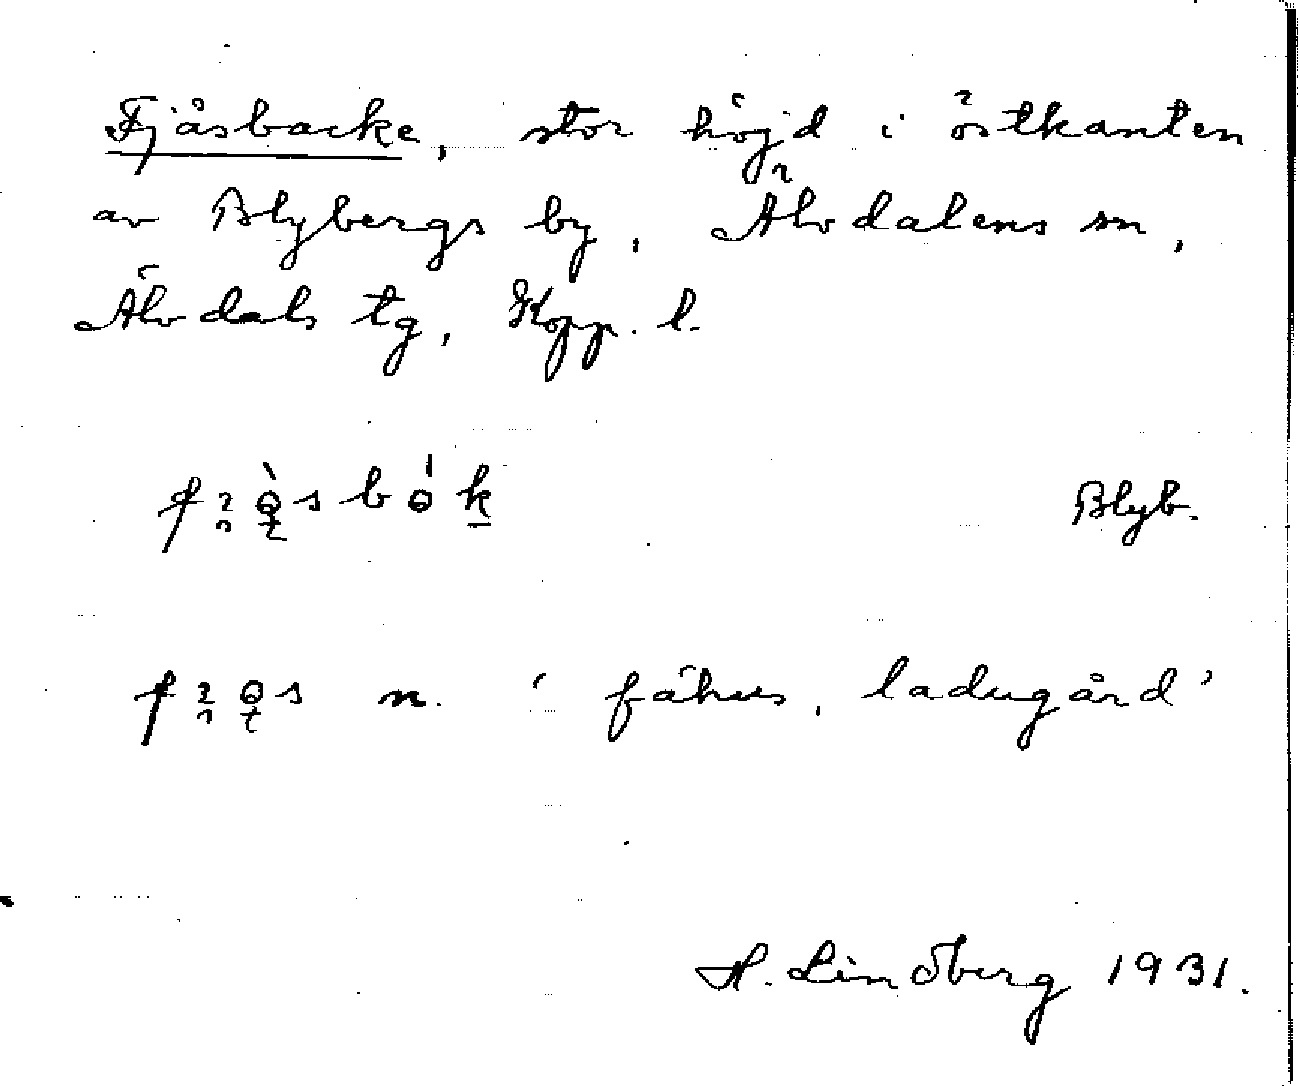 Fjåsbacke, stor höjd i östkanten
av Blybergs by, Älvdalens sn,
Älvdals tg, Kopp. l.
Blyb.
n. ‘fähus, ladugård’
H. Lindberg 1931.